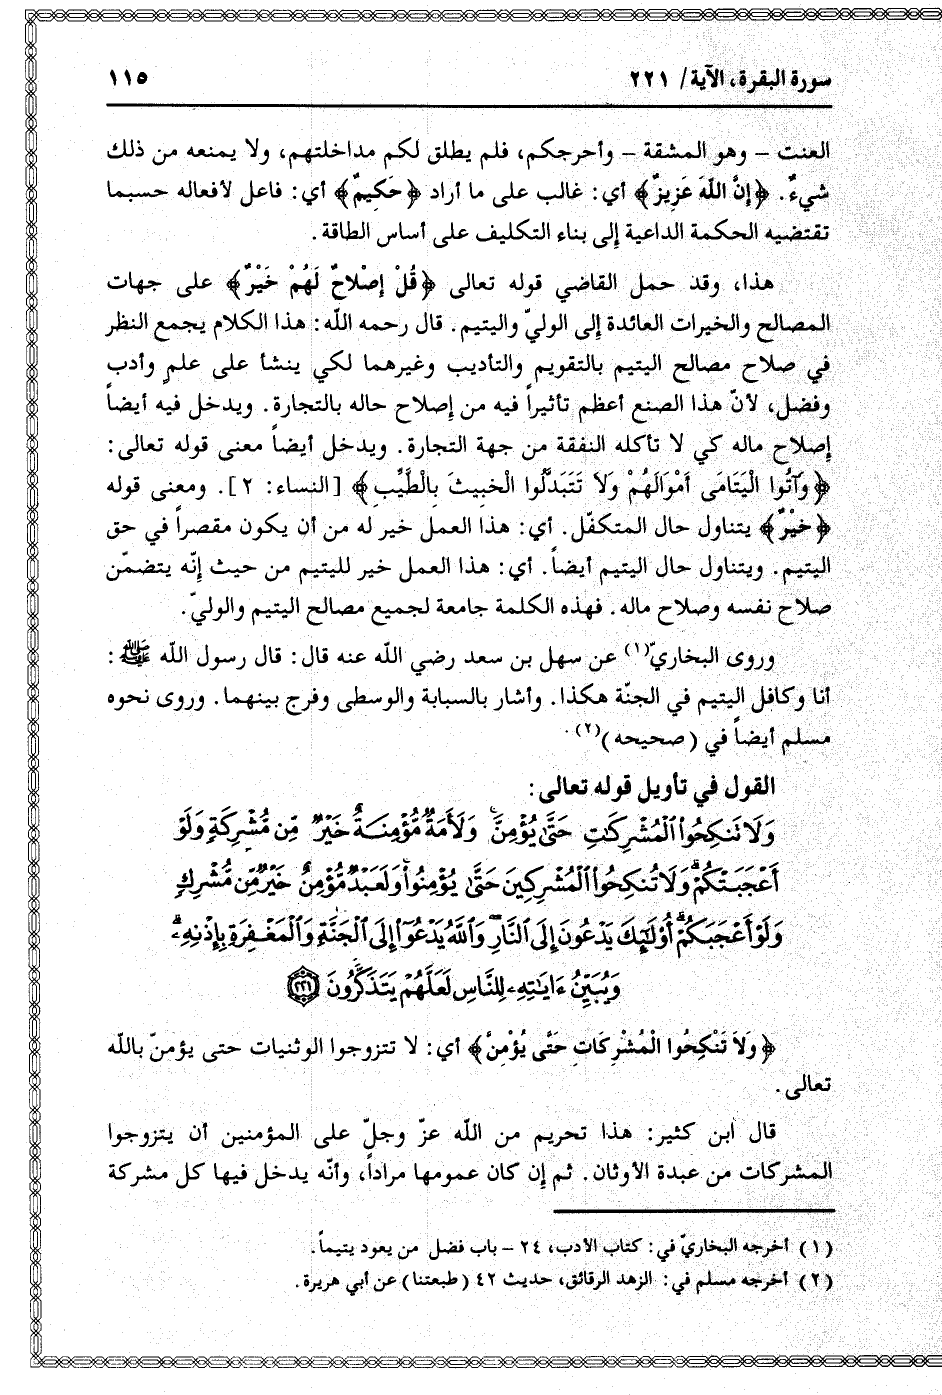 سورة البقرة، الآية/ ٢٢١
١١٥
العنت – وهو المشقة – وأحرجكم، فلم يطلق لكم مداخلتهم، ولا يمنعه من ذلك
شيءٌ. ﴿إِنَّ اللّهَ عَزِيزٌ﴾ أي: غالب على ما أراد ﴿حَكِيمٌ﴾ أي: فاعل لأفعاله حسبما
تقتضيه الحكمة الداعية إلى بناء التكليف على أساس الطاقة.
هذا، وقد حمل القاضي قوله تعالى ﴿قُلْ إِصْلاَحٌ لَهُمْ خَيْرٌ﴾ على جهات
المصالح والخيرات العائدة إلى الوليّ واليتيم. قال رحمه اللّه: هذا الكلام يجمع النظر
في صلاح مصالح اليتيم بالتقويم والتأديب وغيرهما لكي ينشأ على علمٍ وأدب
وفضل، لأنّ هذا الصنع أعظم تأثيراً فيه من إصلاح حاله بالتجارة. ويدخل فيه أيضاً
إصلاح ماله كي لا تأكله النفقة من جهة التجارة. ويدخل أيضاً معنى قوله تعالى:
﴿وَآتُوا الْيَتَامَى أَمْوَالَهُمْ وَلاَ تَتَبَدَّلُوا الْخَبِيثَ بِالْطَّيِّبِ﴾ [النساء: ٢]. ومعنى قوله
﴿خَيْرٌ﴾ يتناول حال المتكفّل. أي: هذا العمل خير له من أن يكون مقصراً في حق
اليتيم. ويتناول حال اليتيم أيضاً. أي: هذا العمل خير لليتيم من حيث إنّه يتضمّن
صلاح نفسه وصلاح ماله. فهذه الكلمة جامعة لجميع مصالح اليتيم والوليّ.
وروى البخاريّ(١) عن سهل بن سعد رضي اللّه عنه قال: قال رسول اللّه ﷺ:
أنا وكافل اليتيم في الجنّة هكذا. وأشار بالسبابة والوسطى وفرج بينهما. وروى نحوه
مسلم أيضاً في (صحيحه)(٢).
القول في تأويل قوله تعالى:
وَلَا تَنكِحُوا۟ ٱلْمُشْرِكَٰتِ حَتَّىٰ يُؤْمِنَّ ۚ وَلَأَمَةٌ مُّؤْمِنَةٌ خَيْرٌ مِّن مُّشْرِكَةٍ وَلَوْ
أَعْجَبَتْكُمْ ۗ وَلَا تُنكِحُوا۟ ٱلْمُشْرِكِينَ حَتَّىٰ يُؤْمِنُوا۟ ۚ وَلَعَبْدٌ مُّؤْمِنٌ خَيْرٌ مِّن مُّشْرِكٍ
وَلَوْ أَعْجَبَكُمْ ۗ أُو۟لَٰٓئِكَ يَدْعُونَ إِلَى ٱلنَّارِ ۖ وَٱللَّهُ يَدْعُوٓا۟ إِلَى ٱلْجَنَّةِ وَٱلْمَغْفِرَةِ بِإِذْنِهِۦ ۖ
وَيُبَيِّنُ ءَايَٰتِهِۦ لِلنَّاسِ لَعَلَّهُمْ يَتَذَكَّرُونَ ﴿٢٢١﴾
﴿وَلاَ تَنْكِحُوا الْمُشْرِكَاتِ حَتَّى يُؤْمِنَّ﴾ أي: لا تتزوجوا الوثنيات حتى يؤمنّ باللّه
تعالى.
قال ابن كثير: هذا تحريم من اللّه عزّ وجلّ على المؤمنين أن يتزوجوا
المشركات من عبدة الأوثان. ثم إن كان عمومها مراداً، وأنّه يدخل فيها كل مشركة
(١) أخرجه البخاريّ في: كتاب الأدب، ٢٤ – باب فضل من يعود يتيماً.
(٢) أخرجه مسلم في: الزهد الرقائق، حديث ٤٢ (طبعتنا) عن أبي هريرة.